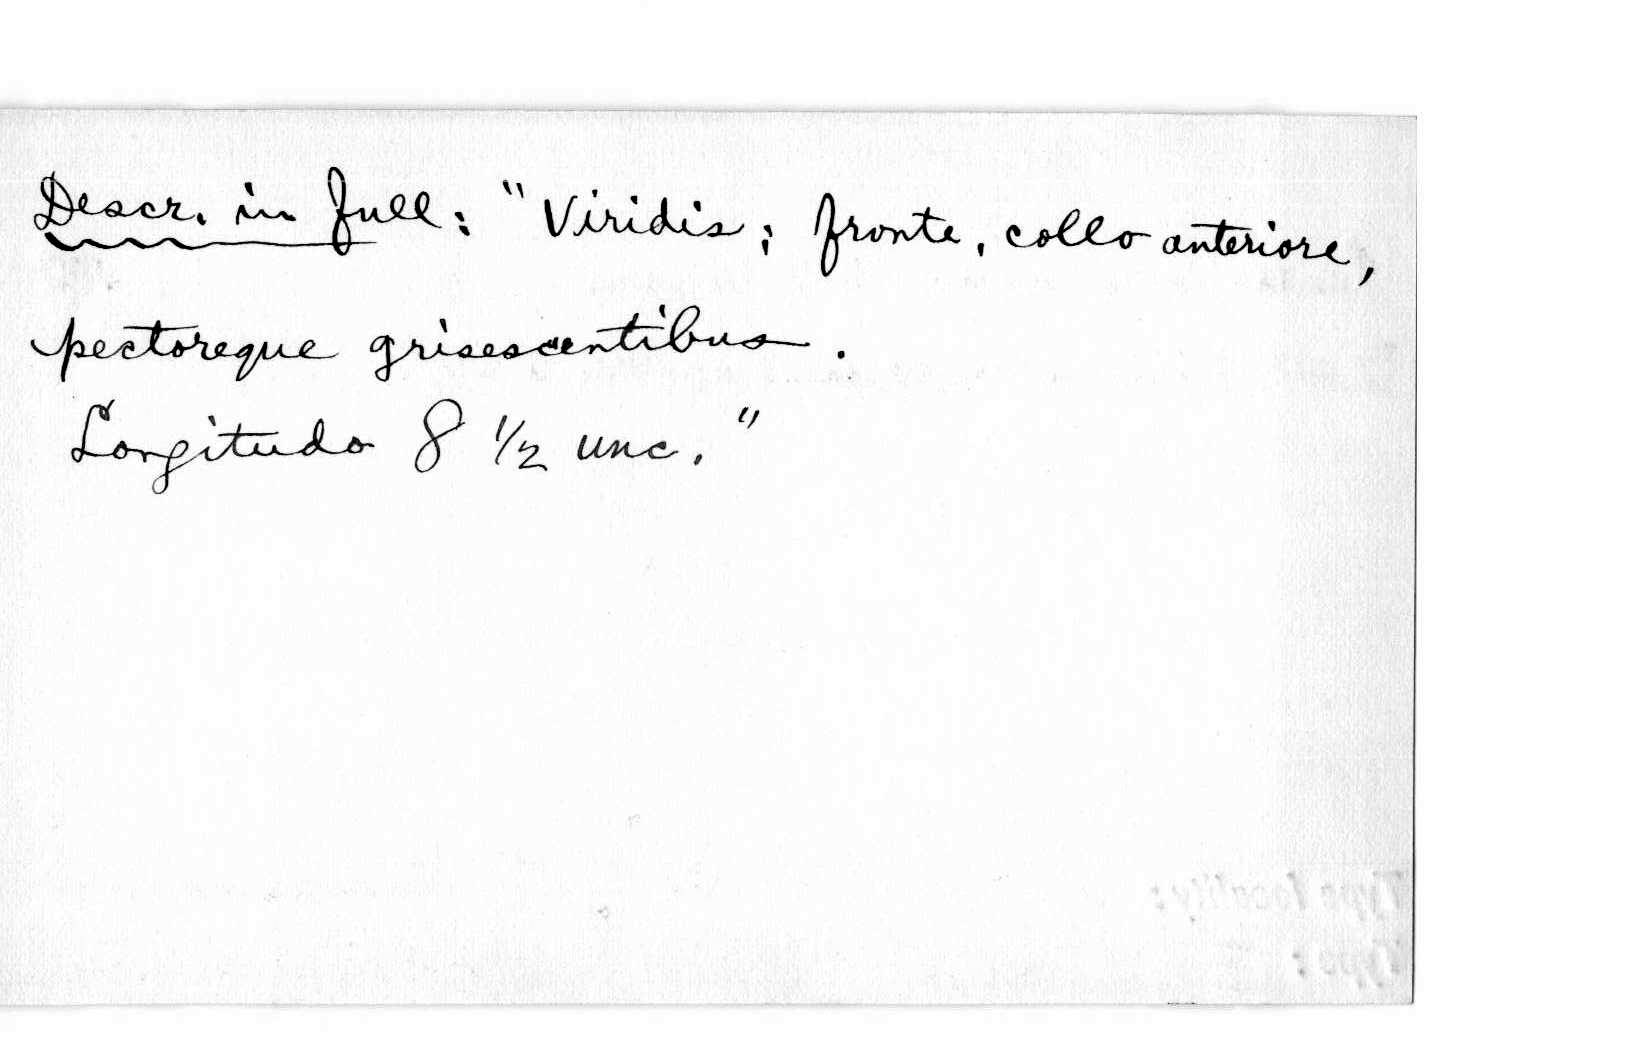 Descr. in full: "Viridis; fronte, collo anteriore,
pectoreque grisescentibus.
Longitudo 8 1/2 unc."
Type locality:
Type: